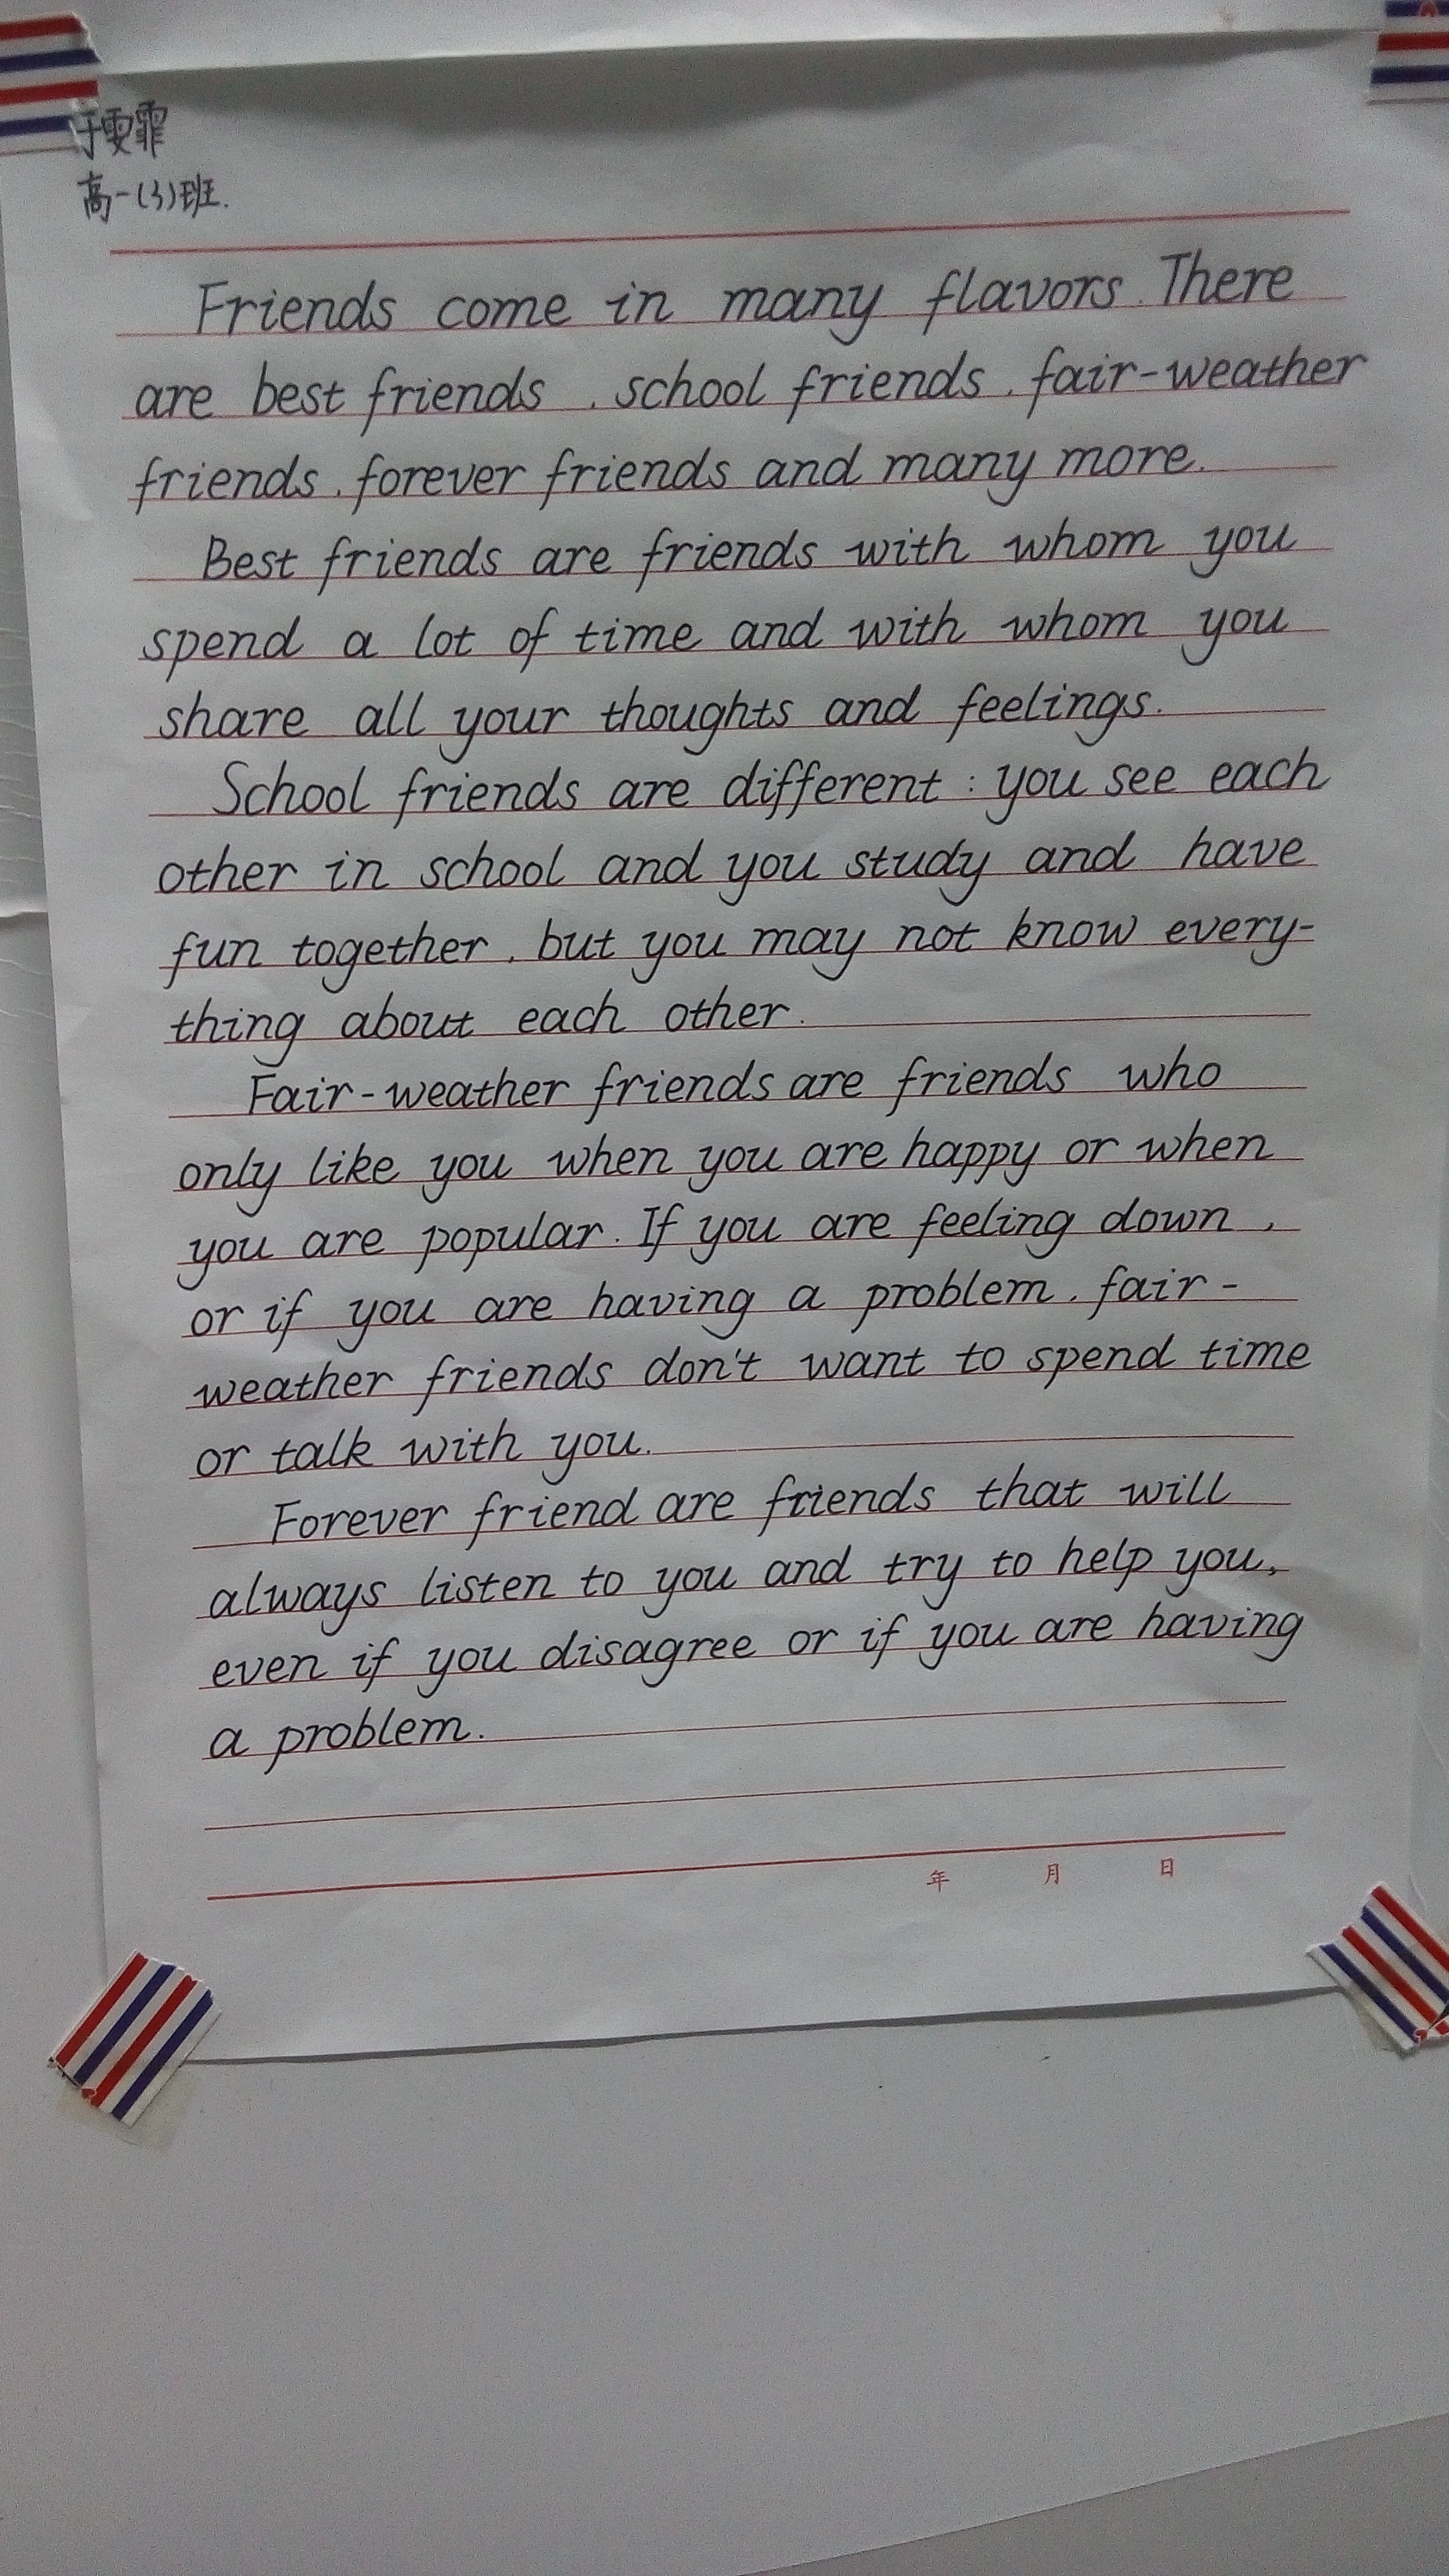 于雯霏
高一(3)班.
Friends come in many flavors. There
are best friends , school friends , fair-weather
friends , forever friends and many more.
Best friends are friends with whom you
spend a lot of time and with whom you
share all your thoughts and feelings.
School friends are different : you see each
other in school and you study and have
fun together , but you may not know every-
thing about each other.
Fair-weather friends are friends who
only like you when you are happy or when
you are popular. If you are feeling down ,
or if you are having a problem , fair-
weather friends don't want to spend time
or talk with you.
Forever friend are friends that will
always listen to you and try to help you,
even if you disagree or if you are having
a problem.
年 月 日